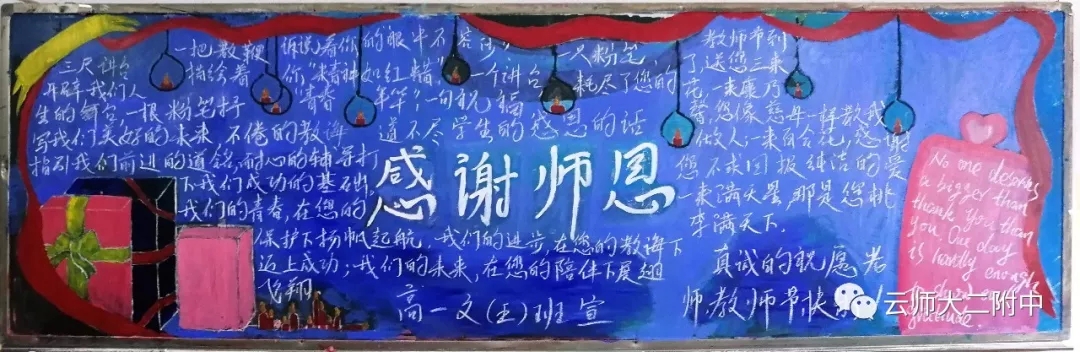 三尺讲台
开辟我们人
生的舞台,一根粉笔抒
写我们美好的未来 不倦的教诲
指引我们前进的道路,耐心的辅导打
下我们成功的基础。
我们的青春,在您的
保护下扬帆起航,我们的进步,在您的教诲下
迈上成功;我们的未来,在您的陪伴下展翅
飞翔
一把教鞭
描绘着
诉说着你的眼中不容
你"精神如红烛"
"青春
一个讲台
一只粉笔
耗尽了您的
年华,一句祝福
道不尽学生的感恩的话
感谢师恩
教师节到
了,送您三束
花,一束康乃
馨,您像慈母一样教我
做人,一束百合花,感谢
您不求回报纯洁的爱
一束满天星,那是您桃
李满天下.
真诚的祝愿老
师,教师节快
高一文(五)班宣
No one deserves
a bigger than
thank you than
you. One day
is hardly enough
gratitude.
云师大二附中